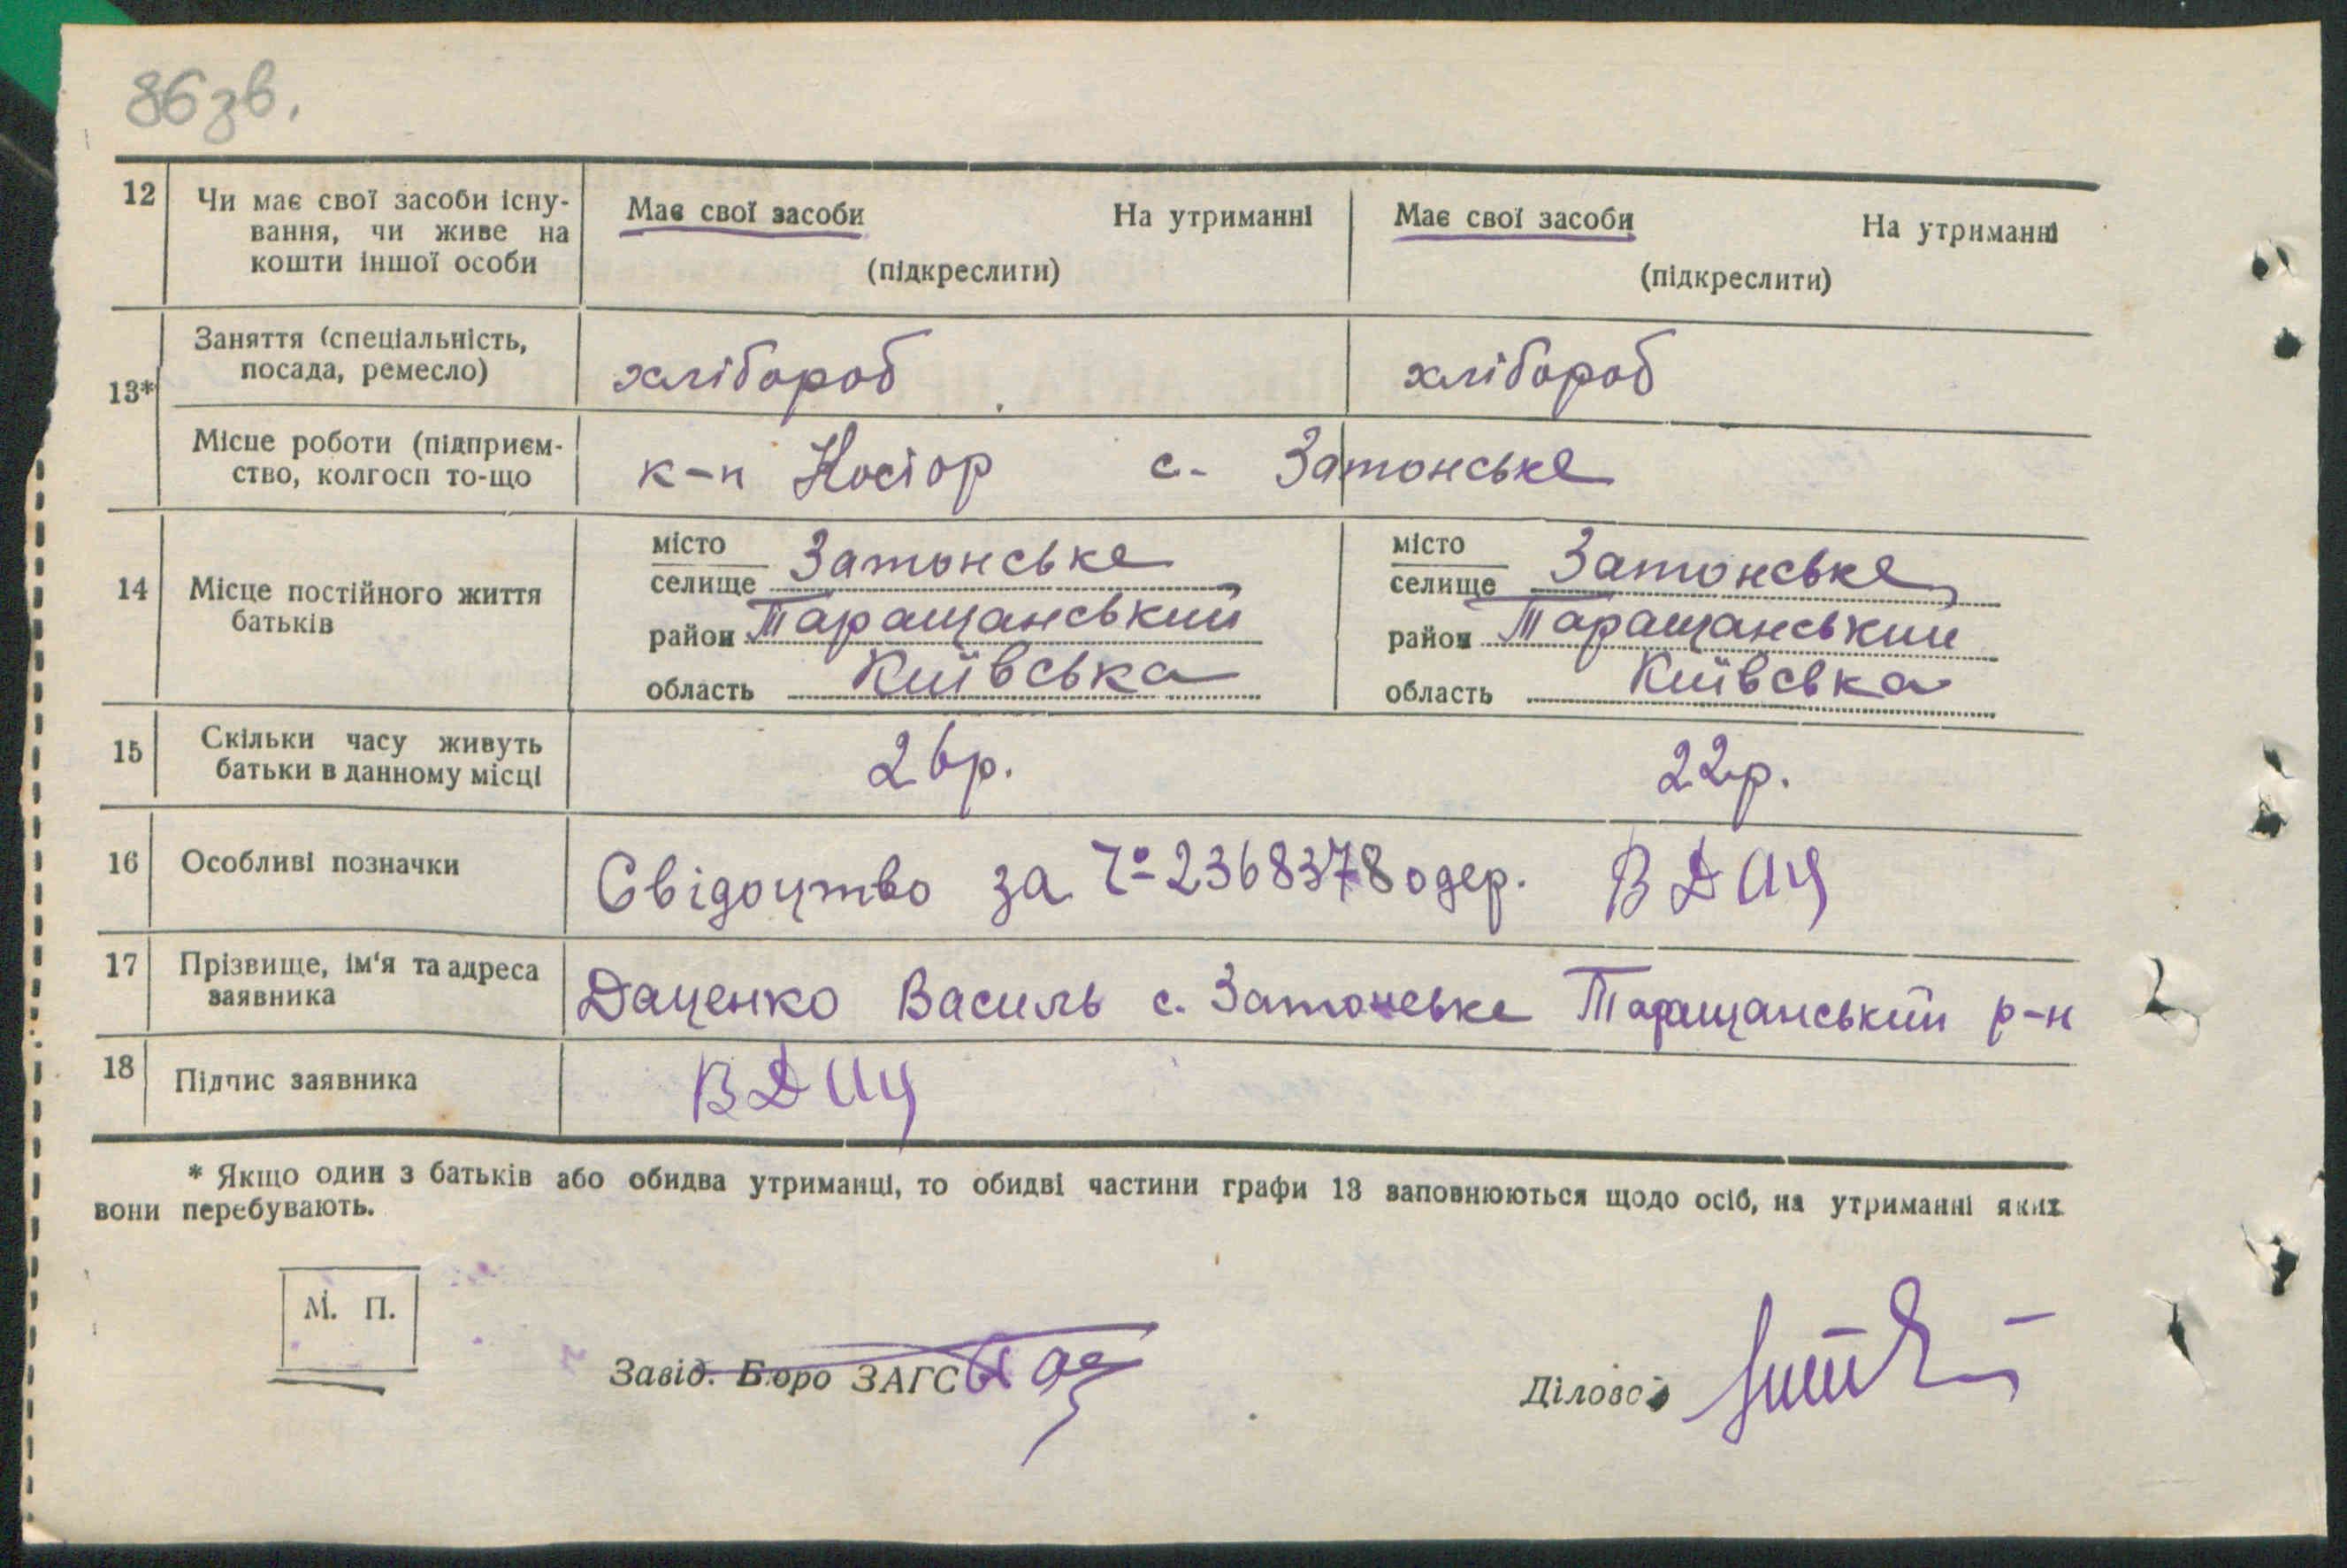 86зв.
12 Чи має свої засоби існу-
вання, чи живе на
кошти іншої особи
Має свої засоби На утриманні
(підкреслити)
Має свої засоби На утриманні
(підкреслити)
13*
Заняття (спеціальність,
посада, ремесло)
хлібороб
хлібороб
Місце роботи (підприєм-
ство, колгосп то-що
к-п Косіор с. Затонське
14 Місце постійного життя
батьків
місто
селище Затонське
район Таращанський
область Київська
місто
селище Затонське
район Таращанський
область Київська
15 Скільки часу живуть
батьки в данному місці
26р.
22р.
16 Особливі позначки
Свідоцтво за № 2368378 одер. ВДац
17 Прізвище, ім'я та адреса
заявника
Даценко Василь с. Затонське Таращанський р-н
18 Підпис заявника
ВДац
* Якщо один з батьків або обидва утриманці, то обидві частини графи 13 заповнюються щодо осіб, на утриманні яких
вони перебувають.
М. П.
Завід. Бюро ЗАГС
Діловод